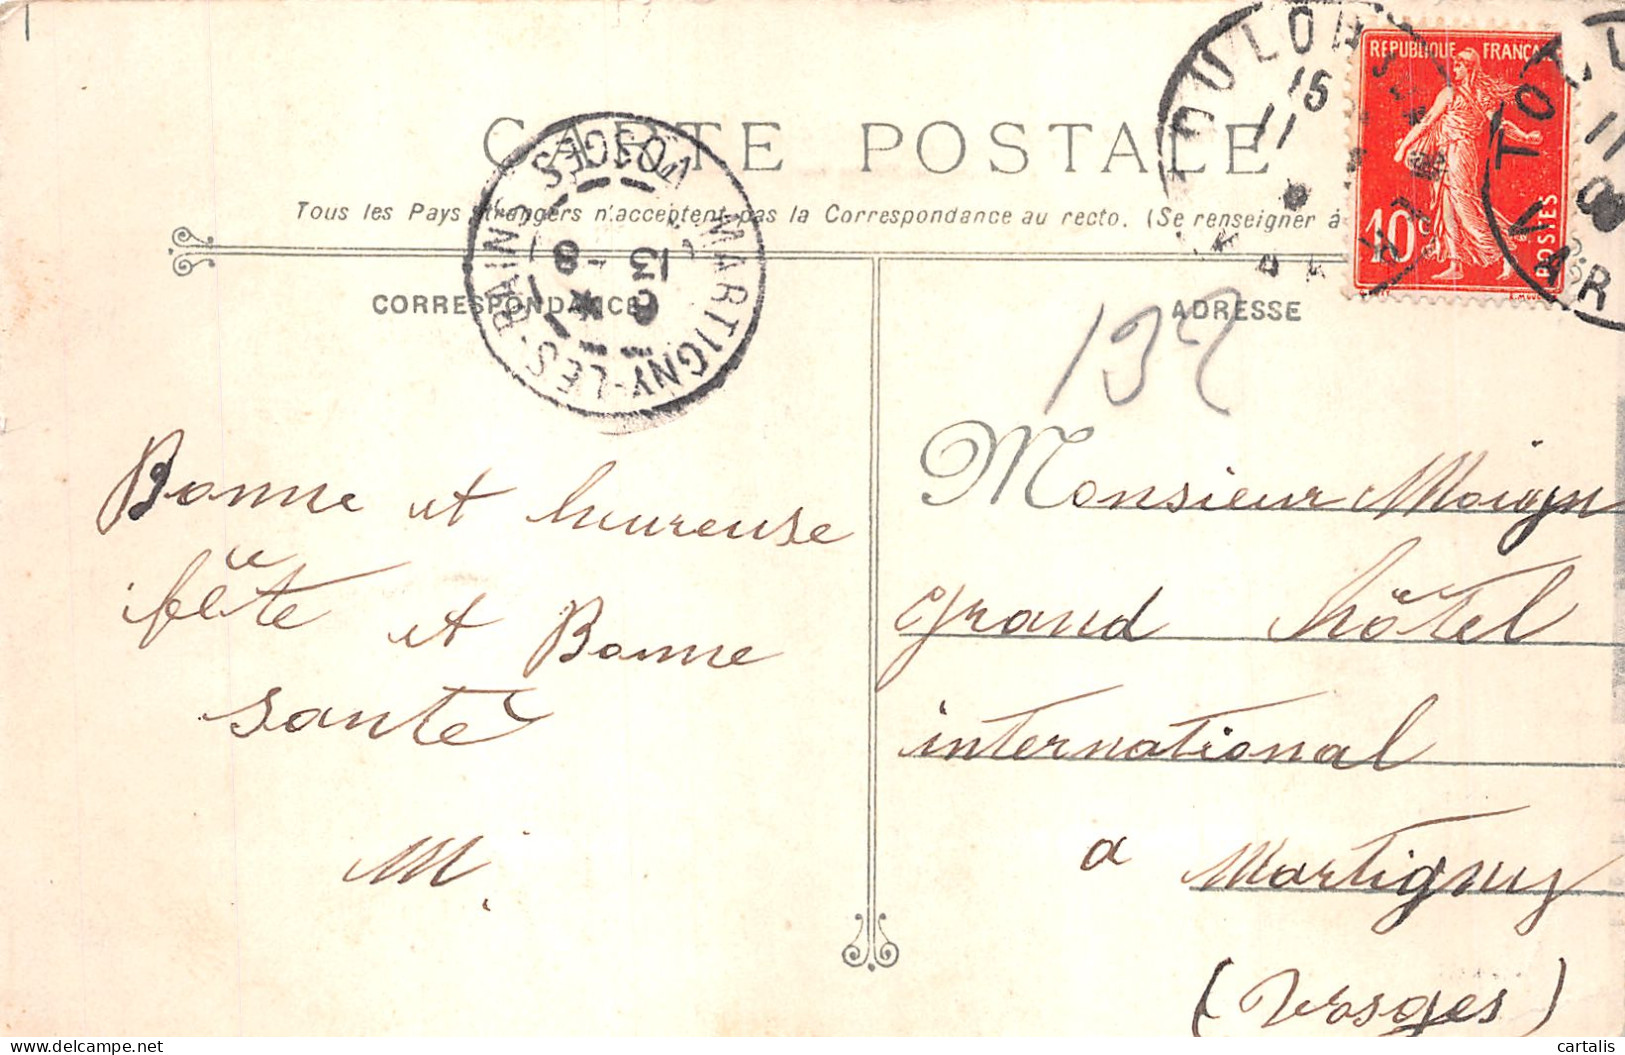 CARTE POSTALE
Tous les Pays étrangers n'acceptent pas la Correspondance au recto. (Se renseigner à
CORRESPONDANCE
ADRESSE
RÉPUBLIQUE FRANÇAISE
10c
POSTES
MARTIGNY-LES-BAINS
VOSGES
TOULON
15
11
TOUL
11
VAR
132
Bonne et heureuse
fête et Bonne
santé
M.
Monsieur
grand hôtel
international
a Martigny
(Vosges)
cartalis